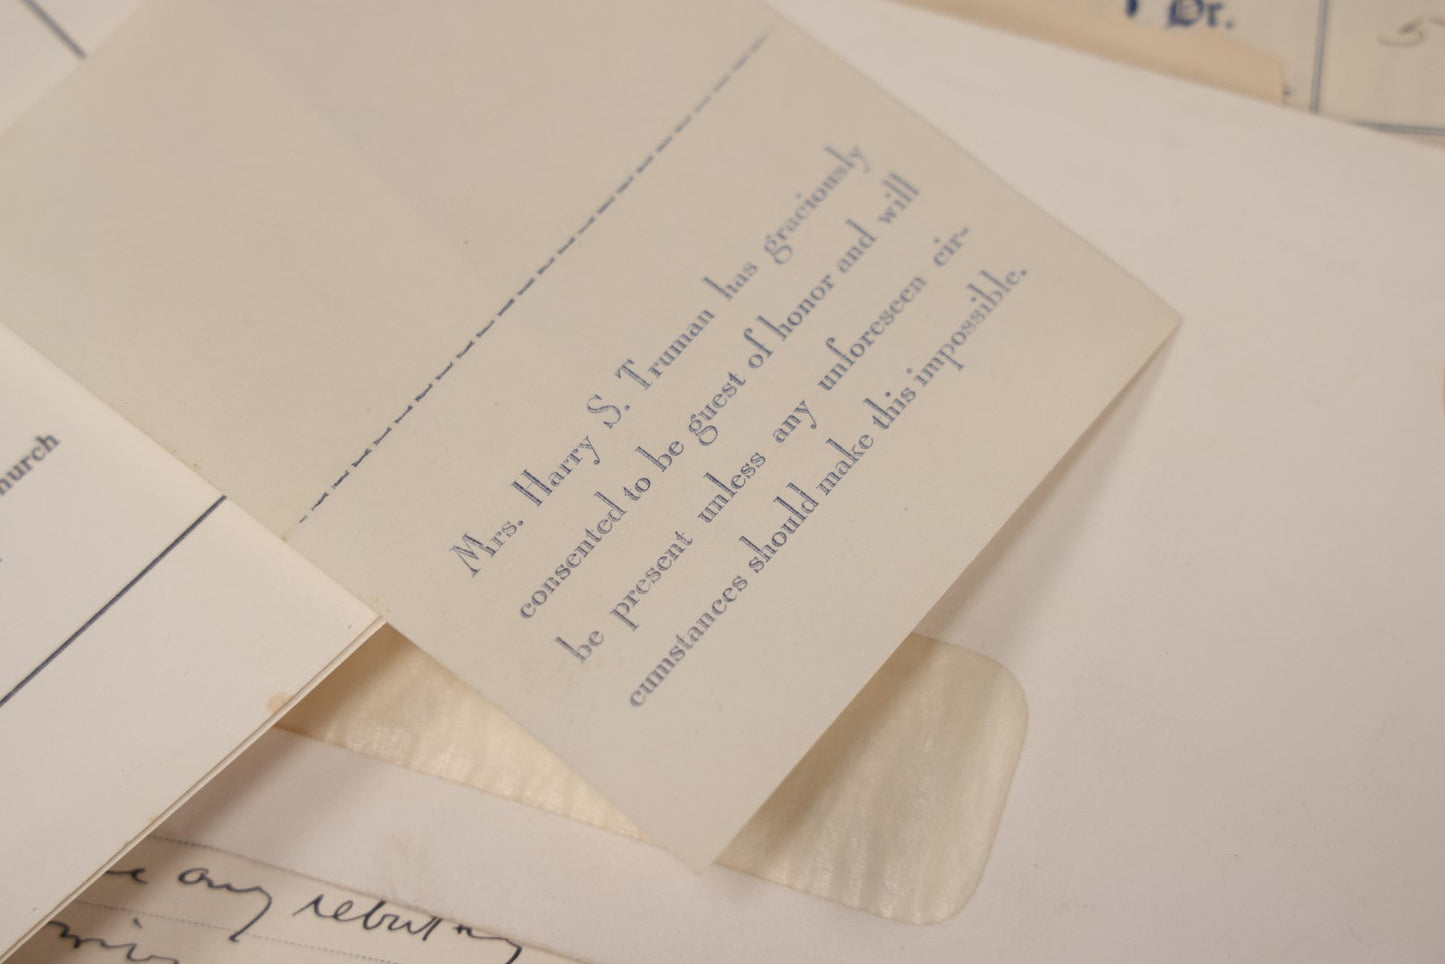 Dr.
5
Mrs. Harry S. Truman has graciously
consented to be guest of honor and will
be present unless any unforeseen cir-
cumstances should make this impossible.
hurch
any rebut